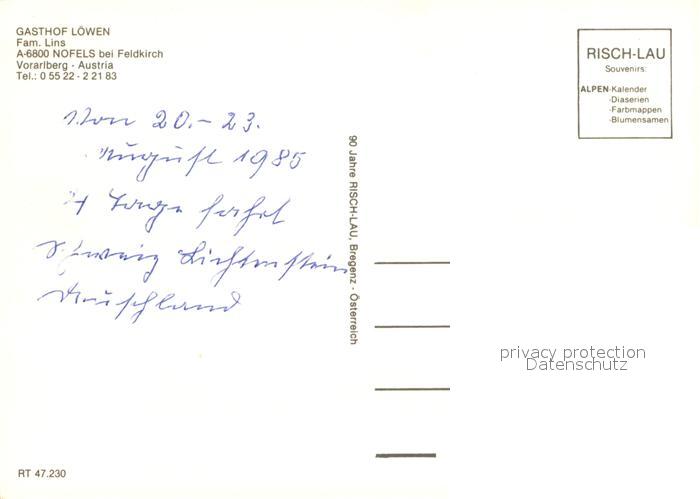 GASTHOF LÖWEN
Fam. Lins
A-6800 NOFELS bei Feldkirch
Vorarlberg - Austria
Tel.: 0 55 22 - 2 21 83
RISCH-LAU
Souvenirs:
ALPEN-Kalender
-Diaserien
-Farbmappen
-Blumensamen
Von 20.- 23.
August 1985
4 Tage fahrt
Schweiz Lichtenstein
Deuschland
90 Jahre RISCH-LAU, Bregenz - Österreich
privacy protection
Datenschutz
RT 47.230